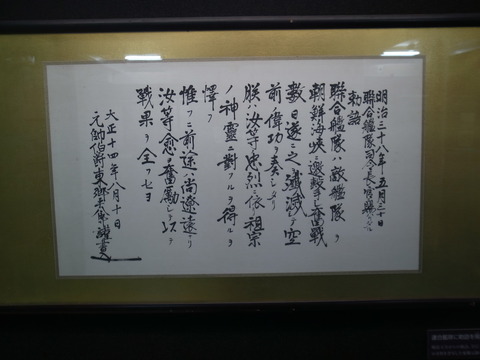 明治三十八年五月三十日
聯合艦隊司令長官ニ賜ハリタル
勅語
聯合艦隊ハ敵艦隊ヲ
朝鮮海峡ニ邀撃シ奮戦
数日遂ニ之ヲ殲滅シテ空
前ノ偉功ヲ奏シタリ
朕ハ汝等ノ忠烈ニ依リ祖宗
ノ神霊ニ對フルヲ得ルヲ
懌フ
惟フニ前途ハ尚遼遠ナリ
汝等愈奮励シテ以テ
戦果ヲ全フセヨ
大正十四年八月十日
元帥伯爵東郷平八郎謹書